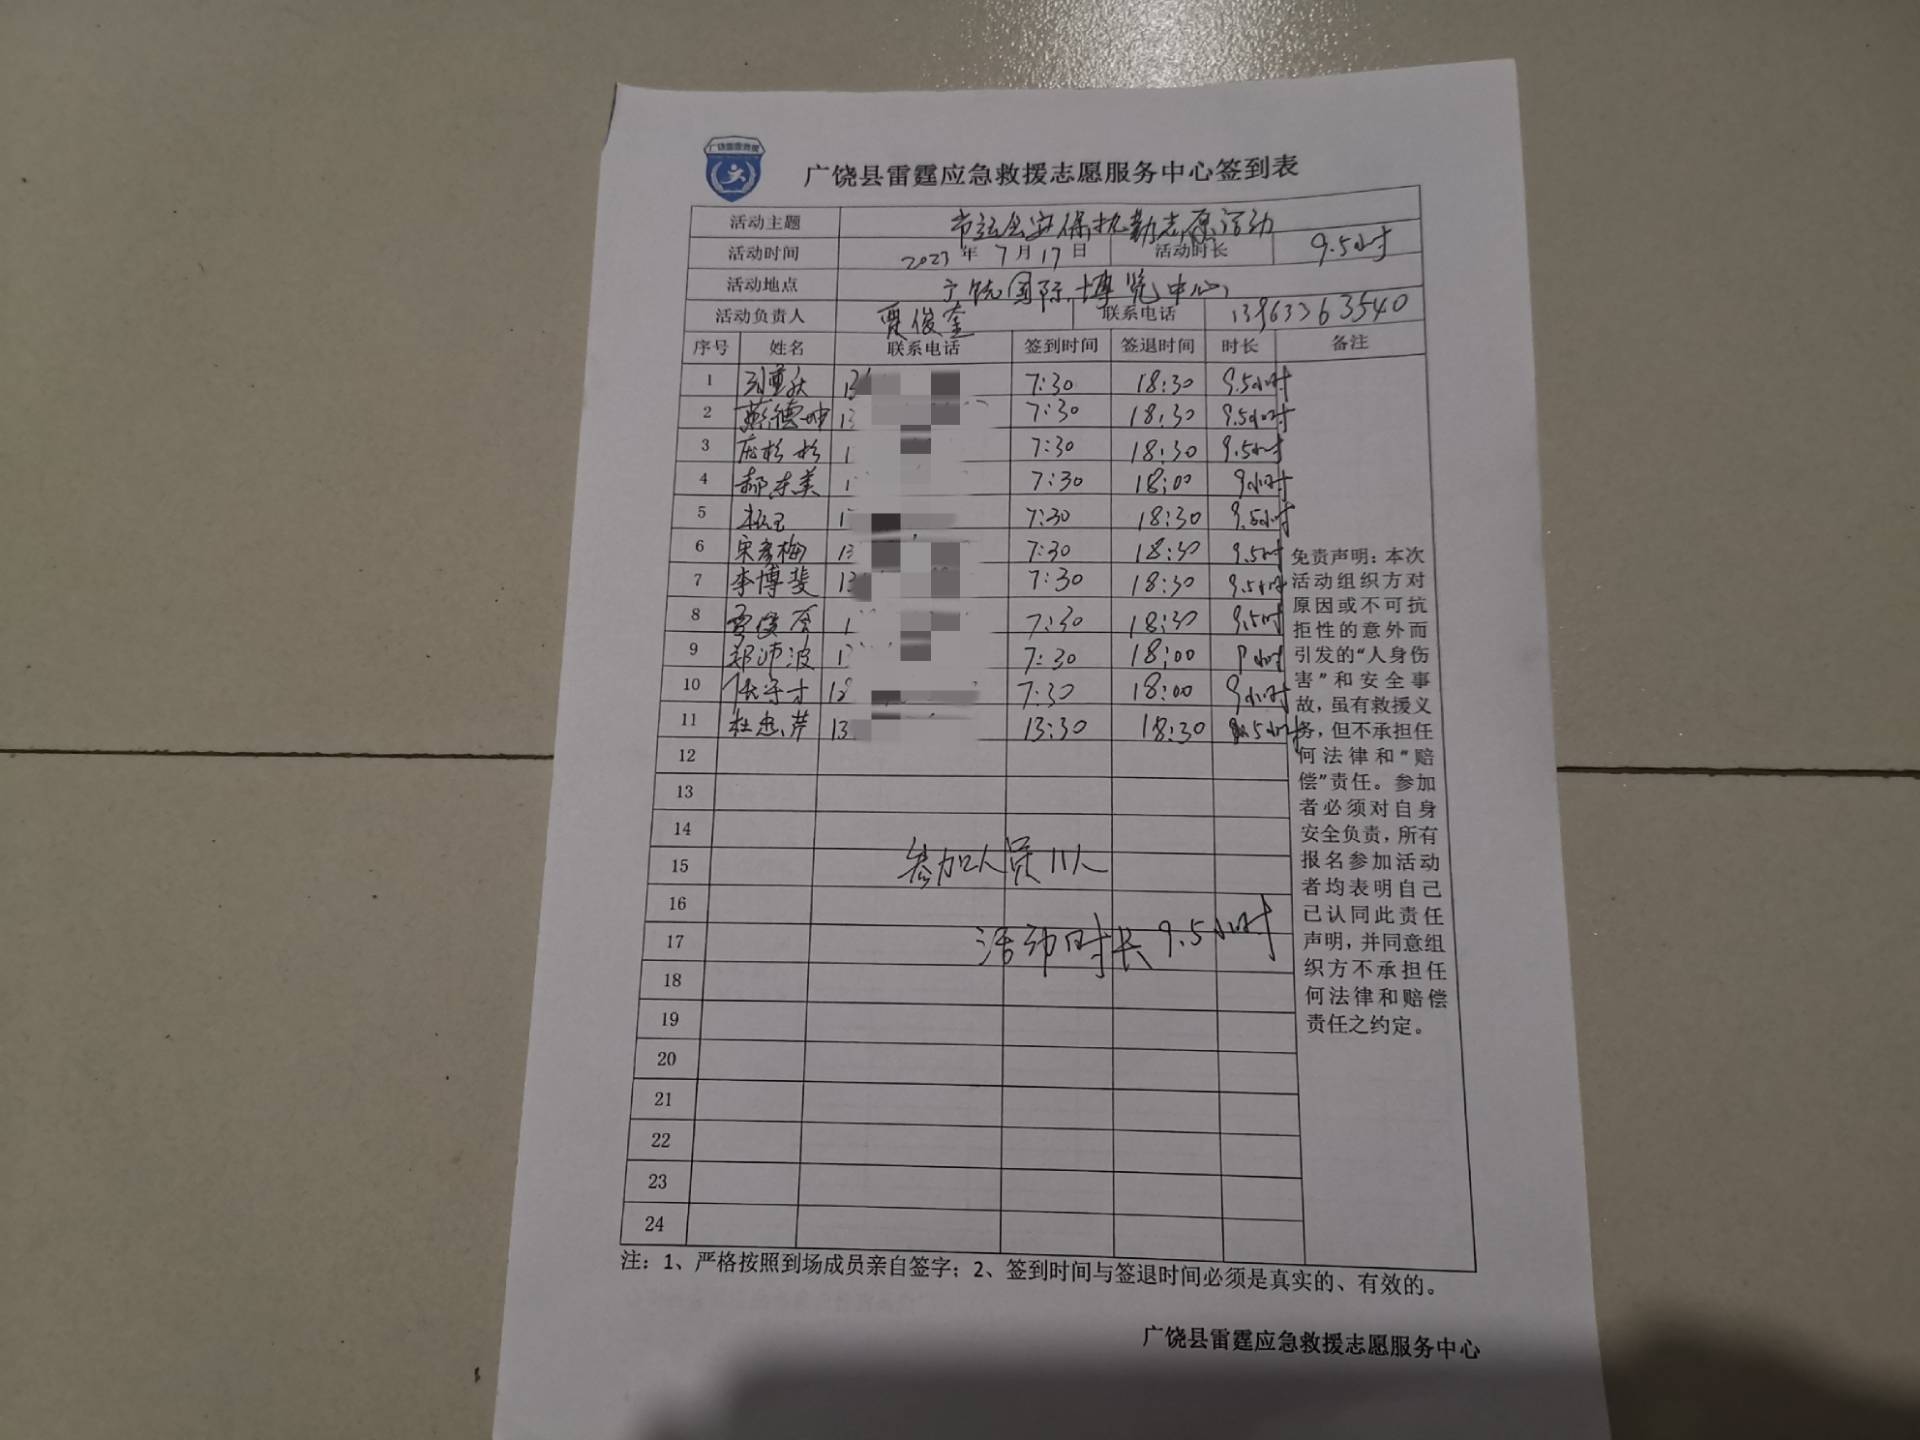 广饶县雷霆应急救援志愿服务中心签到表
活动主题 市运会安保执勤志愿活动
活动时间 2023年7月17日 活动时长 9.5小时
活动地点 广饶国际博览中心
活动负责人 贾俊奎 联系电话 13963263540
序号 姓名 联系电话 签到时间 签退时间 时长 备注
1 13 7:30 18:30 9.5小时
2 蔡德坤 13 7:30 18:30 9.5小时
3 1 7:30 18:30 9.5小时
4 郝冬美 1 7:30 18:00 9小时
5 1 7:30 18:30 9.5小时
6 宋彦梅 13 7:30 18:30 9.5小时
7 李博斐 13 7:30 18:30 9.5小时
8 贾俊奎 1 7:30 18:30 9.5小时
9 郑沛波 1 7:30 18:00 9小时
10 7:30 18:00 9小时
11 杜忠芹 13 13:30 18:30 5小时
12
13
14
15
16
17
18
19
20
21
22
23
24
参加人员11人
活动时长9.5小时
免责声明：本次
活动组织方对
原因或不可抗
拒性的意外而
引发的“人身伤
害”和安全事
故，虽有救援义
务，但不承担任
何法律和“赔
偿”责任。参加
者必须对自身
安全负责，所有
报名参加活动
者均表明自己
已认同此责任
声明，并同意组
织方不承担任
何法律和赔偿
责任之约定。
注：1、严格按照到场成员亲自签字；2、签到时间与签退时间必须是真实的、有效的。
广饶县雷霆应急救援志愿服务中心